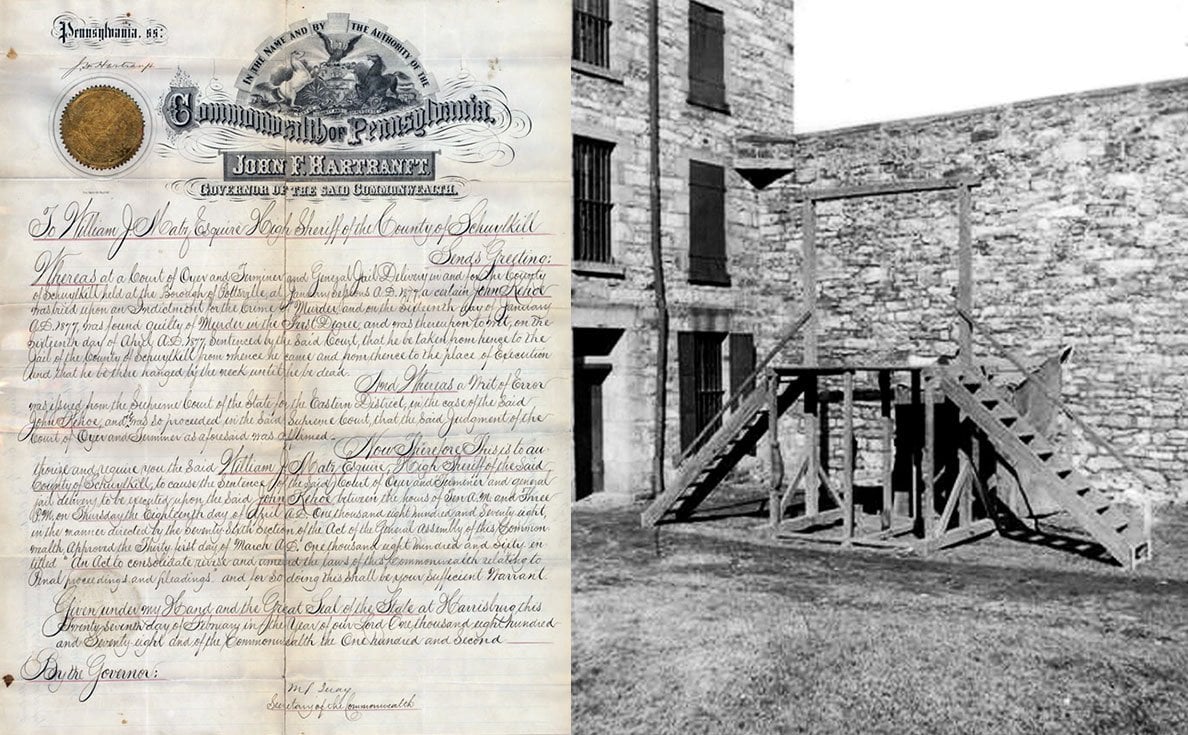 Pennsylvania, ss:
J. F. Hartranft
IN THE NAME AND BY THE AUTHORITY OF THE
Commonwealth of Pennsylvania.
JOHN F. HARTRANFT.
GOVERNOR OF THE SAID COMMONWEALTH.
To William J Matz Esquire High Sheriff of the County of Schuylkill
Sends Greeting:
Whereas at a Court of Oyer and Terminer and General Jail Delivery in and for the County
of Schuylkill held at the Borough of Pottsville, at January Sessions A.D. 1877, a certain John Kehoe
was tried upon an Indictment for the Crime of Murder and on the Sixteenth day of January
A.D. 1877, was found guilty of Murder in the First Degree, and was thereupon to wit, on the
Sixteenth day of April A.D. 1877, Sentenced by the Said Court, that he be taken from hence to the
Jail of the County of Schuylkill from whence he came and from thence to the place of Execution
and that he be there hanged by the neck until he be dead.
And Whereas a Writ of Error
was issued from the Supreme Court of the State for the Eastern District, in the case of the Said
John Kehoe, and was so proceeded in the Said Supreme Court, that the Said Judgment of the
Court of Oyer and Terminer as aforesaid was affirmed.
Now Therefore This is to au-
thorize and require you the Said William J. Matz Esquire, High Sheriff of the Said
County of Schuylkill, to cause the Sentence of the said Court of Oyer and Terminer and general
jail delivery to be executed upon the Said John Kehoe between the hours of Ten A.M. and Three
P.M. on Thursday the Eighteenth day of April A.D. One thousand eight hundred and Seventy eight,
in the manner directed by the Seventy Sixth Section of the Act of the General Assembly of this Common-
wealth Approved the Thirty first day of March A.D. One thousand eight hundred and Sixty en-
titled "An Act to consolidate revise and amend the laws of this Commonwealth relating to
Penal proceedings and pleadings" and for so doing this shall be your Sufficient Warrant.
Given under my Hand and the Great Seal of the State at Harrisburg this
Twenty seventh day of February in the Year of our Lord One thousand eight hundred
and Seventy eight and of the Commonwealth the One hundred and Second
By the Governor:
M. S. Quay
Secretary of the Commonwealth